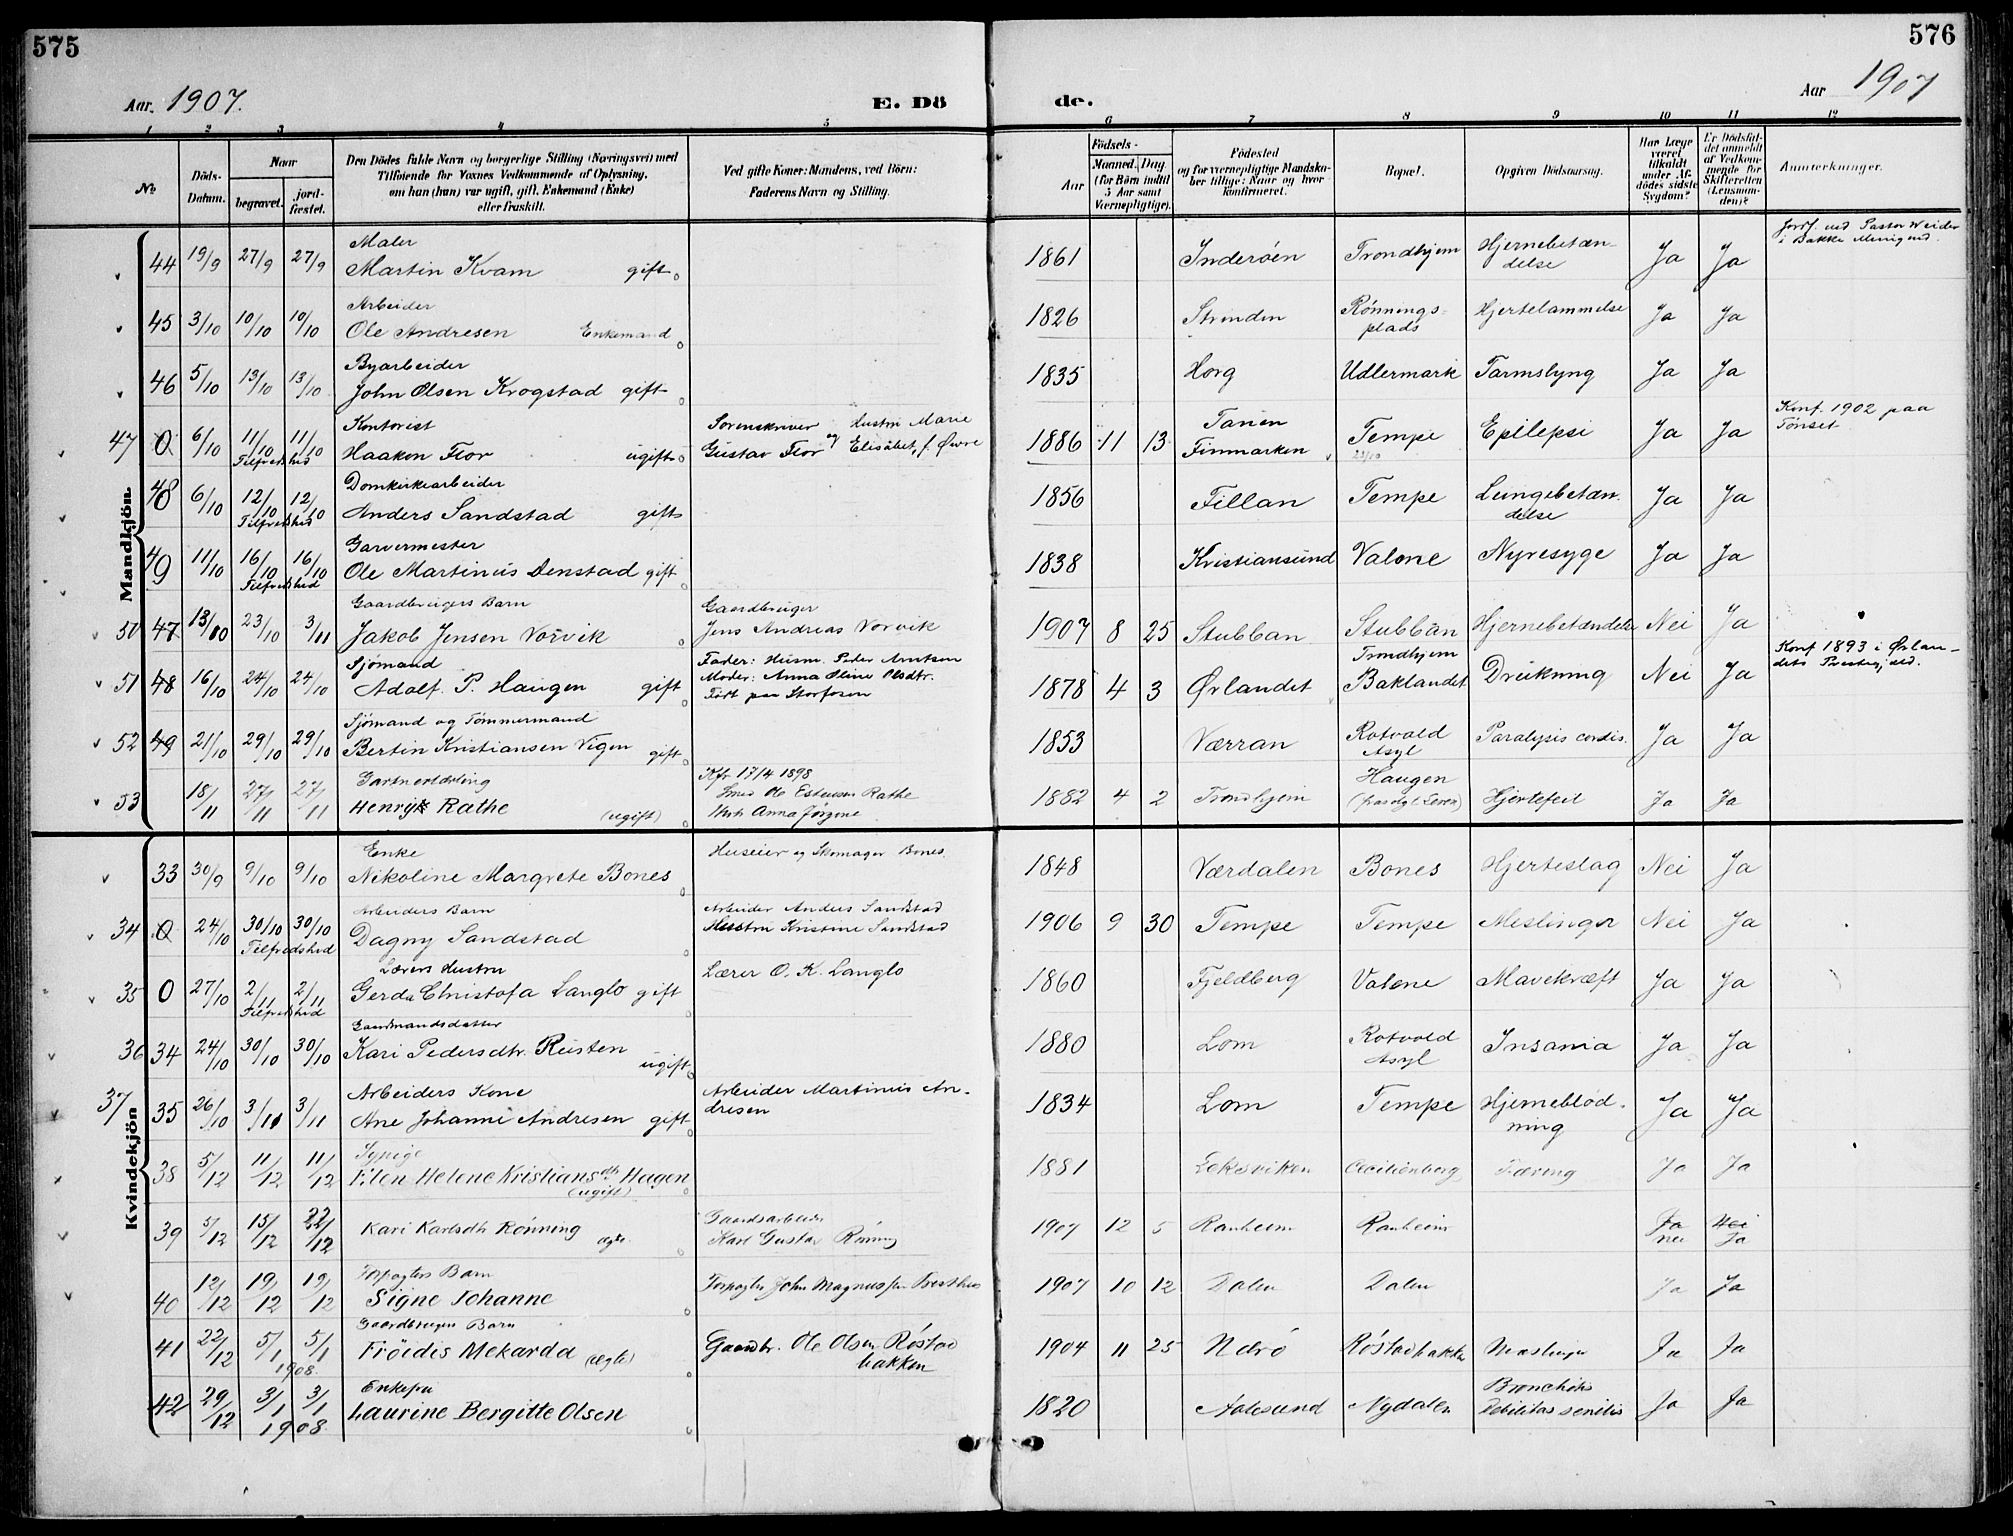 575
576
Aar. 1907.
E. Dö
de.
Aar 1907
1 2 3 4 5 6 7 8 9 10 11 12
No
Döds-Datum.
Naar
begravet.
jordfæstet.
Den Dödes fulde Navn og borgerlige Stilling (Næringsvei) med
Tilföiende for Voxnes Vedkommende af Oplysning,
om han (hun) var ugift, gift, Enkemand (Enke)
eller fraskilt.
Ved gifte Koner: Mandens, ved Börn:
Faderens Navn og Stilling.
Födsels-
Aar
Maaned. Dag
(for Börn indtil 5 Aar samt Værnepligtige).
Födested
og for værnepligtige Mandskaber tillige: Naar og hvor konfirmeret.
Bopæl.
Opgiven Dödsaarsag.
Har Læge været tilkaldt under Afdödes sidste Sygdom?
Er Dödsfaldet anmeldt af Vedkommende for Skifteretten (Lensmanden)?
Anmærkninger.
Mandkjön.
44 19/9 27/9 27/9 Maler
Martin Kvam gift 1861 Inderøen Trondhjem Hjernebetændelse Ja Ja Jordf. ved Pastor Weider i Bakke Menighed.
45 3/10 10/10 10/10 Arbeider
Ole Andresen Enkemand 1826 Strinden Rønningsplads Hjertelammelse Ja Ja
46 5/10 13/10 13/10 Byarbeider
John Olsen Krogstad gift 1835 Horg Udlermark Tarmslyng Ja Ja
47 0 6/10 11/10 11/10 Tilfredshed Kontorist
Haakon Flor ugift Sorenskriver Gustav Flor og Hustru Marie Elisabet, f. Øvre 1886 11 13 Tanen Finmarken Tempe Epilepsi Ja Ja Konf. 1902 paa Tönset.
48 6/10 12/10 12/10 Tilfredshed Domkirkearbeider
Anders Sandstad gift 1856 Fillan Tempe Lungebetændelse Ja Ja
49 11/10 16/10 16/10 Tilfredshed Garvermester
Ole Martinus Denstad gift 1838 Kristiansund Valene Nyresyge Ja Ja
50 47 13/10 23/10 3/11 Gaardbrugers Barn
Jakob Jensen Vorvik Gaardbruger Jens Andreas Vorvik 1907 8 25 Stubban Stubban Hjernebetændelse Nei Ja
51 48 16/10 24/10 24/10 Sjömand
Adolf P. Haugen gift Fader: Husm. Peder Arntsen
Moder: Anna Oline Olsdtr.
Født paa Storfosen 1878 4 3 Ørlandet Trondhjem Baklandet Drukning Nei Ja Konf 1893 i Ørlandets Prestegjeld.
52 49 21/10 29/10 29/10 Sjömand og Tömmermand
Bertin Kristiansen Vigen gift 1853 Værran Rotvold Asyl Paralysis cordis. Ja Ja
53 18/11 27/11 27/11 Gartnerlærling
Henryk Rathe (ugift) Kfr 17/4 1898
Smed Ole Estensen Rathe
Anna Jørgine 1882 4 2 Trondhjem Haugen Hjertefeil Ja Ja
Kvindekjön
33 30/9 9/10 9/10 Enke
Nikoline Margrete Bones Huseier og Skomager Bones. 1848 Værdalen Bones Hjerteslag Nei Ja
34 0 24/10 30/10 30/10 Tilfredshed Arbeiders Barn
Dagny Sandstad Arbeider Anders Sandstad
Hustru Kristine Sandstad 1906 9 30 Tempe Tempe Meslinger Nei Ja
35 0 27/10 2/11 2/11 Tilfredshed Lærers Hustru
Gerda Christofa Langlo gift Lærer O. K. Langlo 1860 Fjeldberg Valene Mavekræft Ja Ja
36 34 24/10 30/10 30/10 Gaardmandsdatter
Kari Pedersdtr. Rusten ugift 1880 Lom Rotvold Asyl Insania Ja Ja
37 35 26/10 3/11 3/11 Arbeiders Kone
Ane Johanne Andresen gift Arbeider Martinus Andresen 1834 Lom Tempe Hjerneblödning Ja Ja
38 5/12 11/12 11/12 Sypige
Elen Helene Kristiansdtr Hagen (ugift) 1881 Leksviken Cecilienborg Tæring Ja Ja
39 5/12 15/12 22/12 Kari Karlsdtr Rönning ægte Gaardsarbeider
Karl Gustav Rönning 1907 12 5 Ranheim Ranheim Ja nei Nei Ja
40 12/12 19/12 19/12 Forpagters Barn
Signe Johanne Forpagter John Magnussen 1907 10 12 Dalen Dalen Ja Ja
41 22/12 5/1 5/1 1908. Gaardbrugers Barn
Fröidis Mekarda (ægte) Gaardbr. Ole Olsen Röstad bakken 1904 11 25 Röstadbakken Ja Ja
42 29/12 3/1 3/1 1908 Enkefru
Laurine Bergitte Olsen 1820 Aalesund Nydalen Bronchitis Debilitas senilis Ja Ja